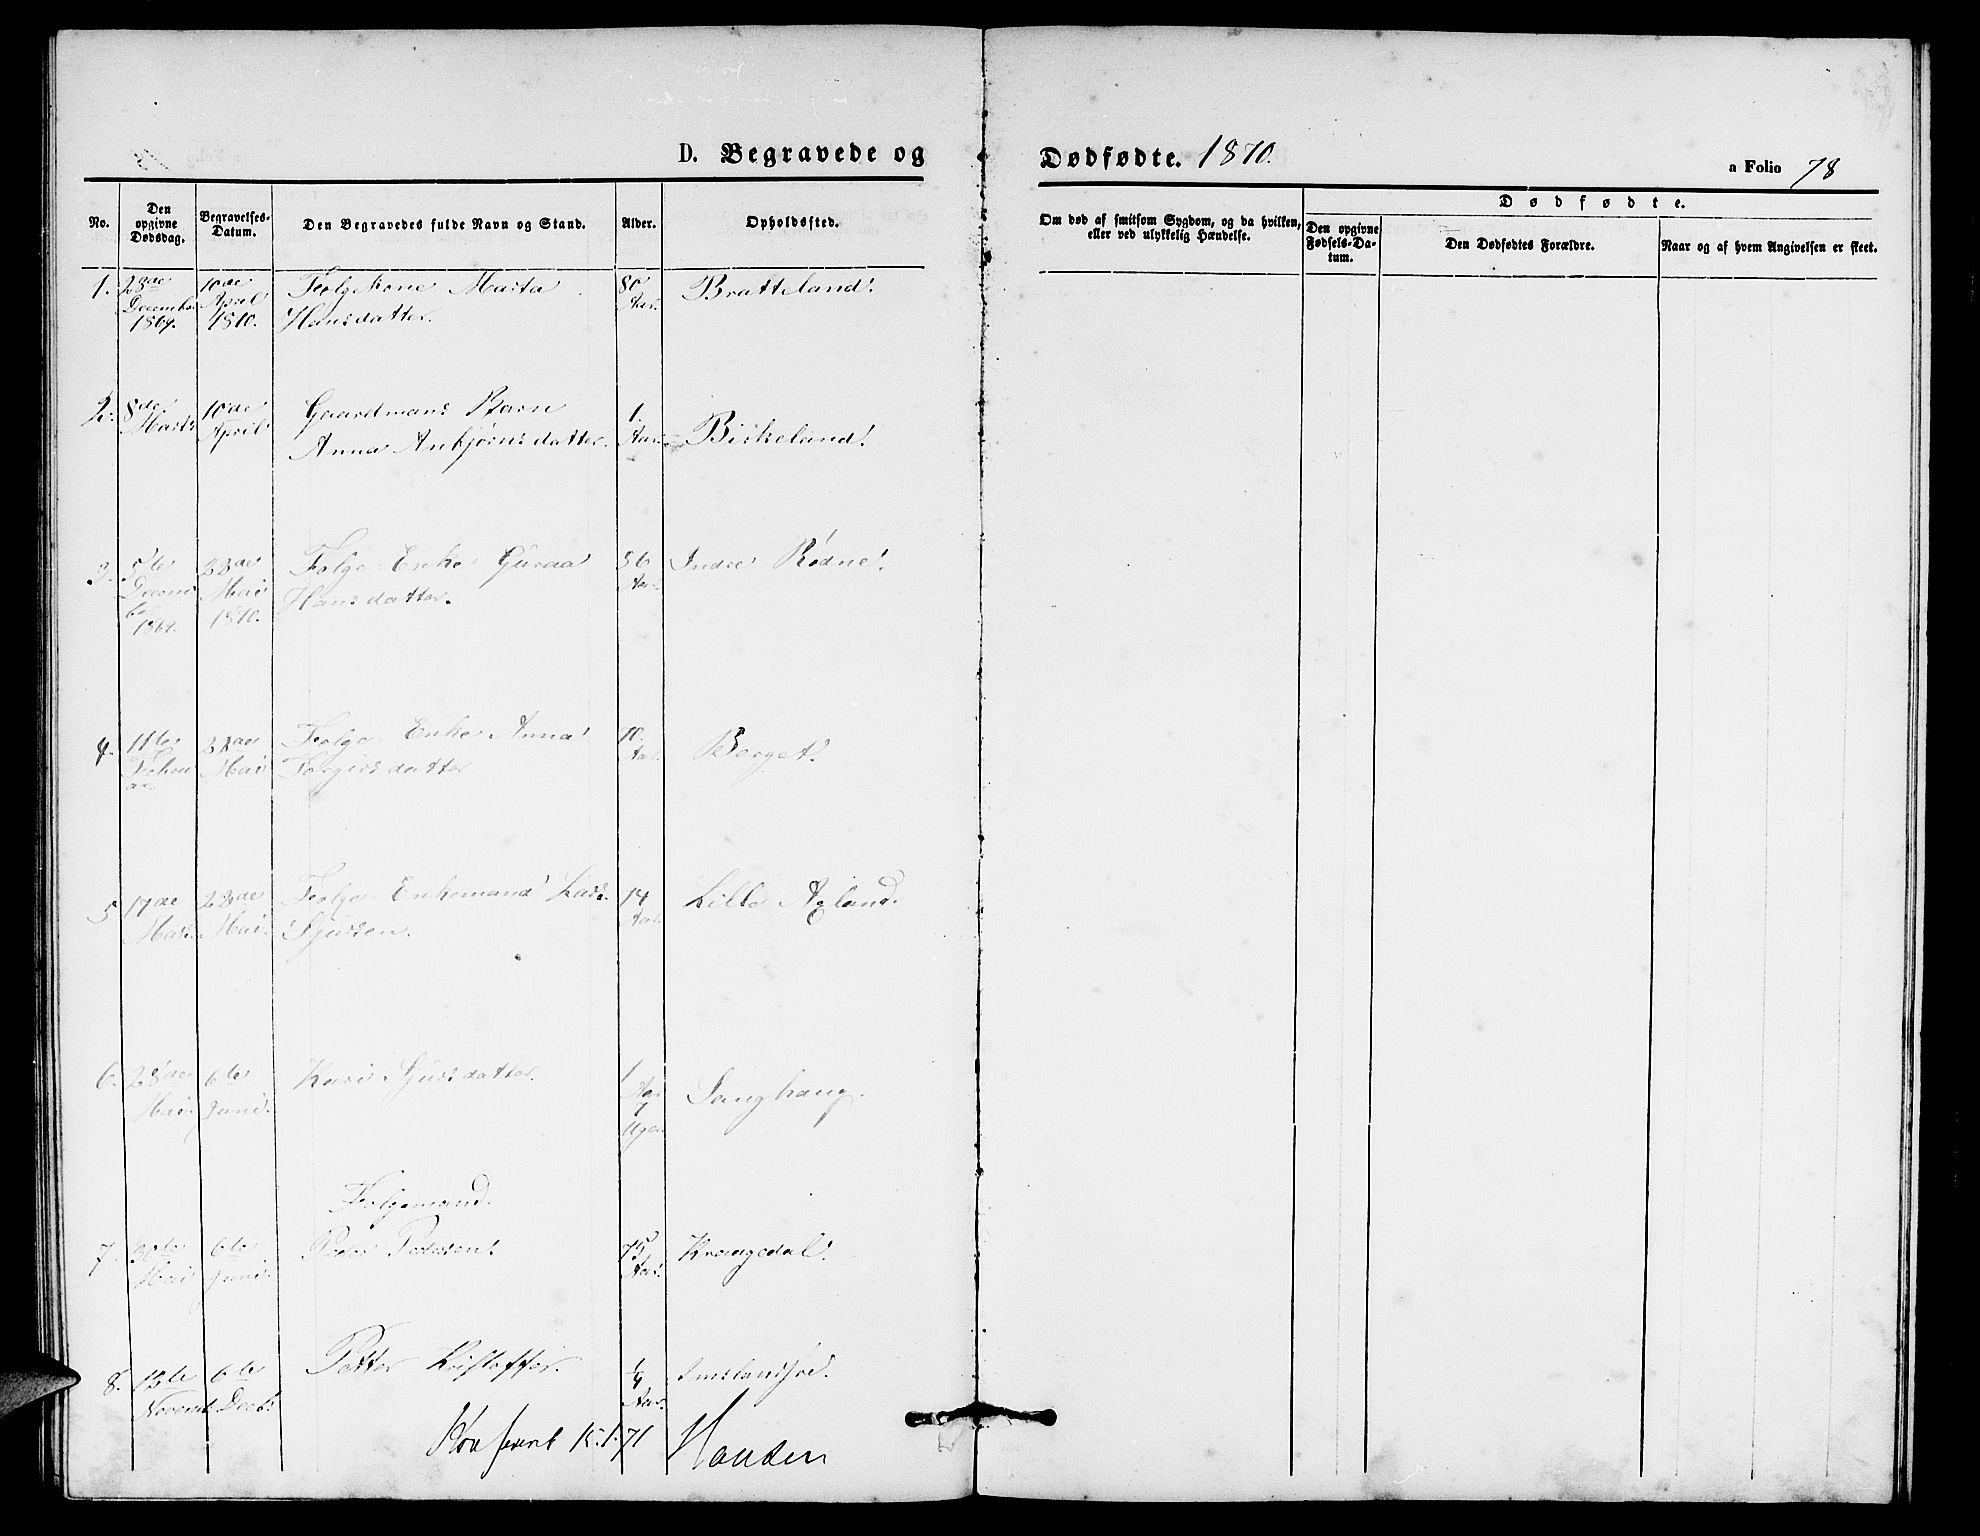 D. Begravede og Dødfødte. 1870.
a Folio 78
No.
Den opgivne Dødsdag.
Begravelses-Datum.
Den Begravedes fulde Navn og Stand.
Alder.
Opholdssted.
Om død af smitsom Sygdom, og da hvilken, eller ved ulykkelig Hændelse.
Dødfødte.
Den opgivne Fødsels-Datum.
Den Dødfødtes Forældre.
Naar og af hvem Angivelsen er skeet.
1. 28de 10de Folgekone Marta 80 Bratteland.
Decembr April Hansdatter. Aar.
1869. 1870.
2. 8de 10de Gaardmans Barn 1.
Marts April Anna Anbjørnsdatter. Aar. Birkeland.
3. 5te 22de Folge Enke Guraa 56 Indre Rødne.
Decem Mai Hansdatter. Aar.
br 1869. 1870.
4. 11te 22de Folge Enke Anna 70. Berget.
Februar Mai Torgersdatter Aar.
5 17de 22de Folge Enkemand Lars 74 Lille Axland.
Mars. Mai. Sjursen. Aar.
6. 28de 6te Kari Sjursdatter. 1
Mai. Juni. Aar 7 Ugen Langhaug.
Folgemand.
7. 30te 6te Peder Pedersen. 75 Kraagedal.
Mai Juni. Aar.
8. 12te 6te Petter Kristoffer. 1/4 Imslandsjøe.
Novemb Decb. Aar.
Konfereret 15.1.71 Hauden